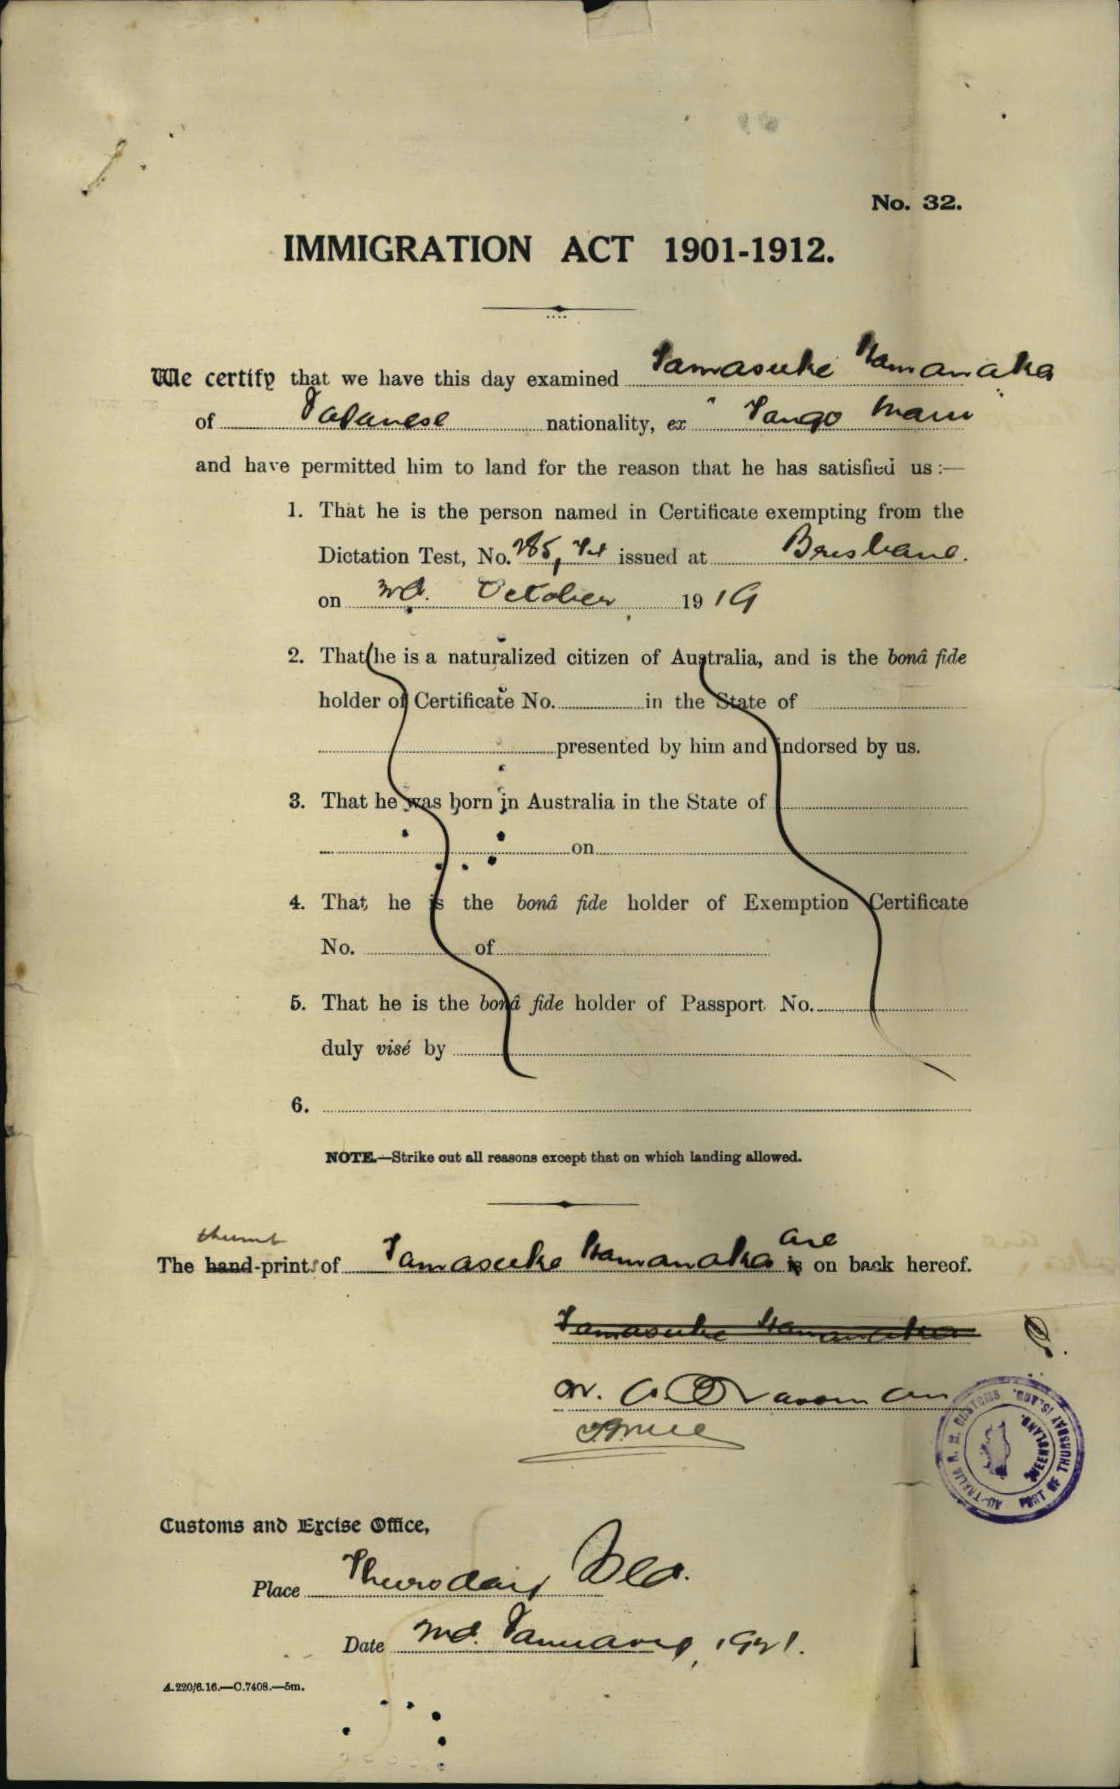 No. 32.
IMMIGRATION ACT 1901-1912.
We certify that we have this day examined Tamasuke Hamanaka
of Japanese nationality, ex "Tango Maru"
and have permitted him to land for the reason that he has satisfied us :—
1. That he is the person named in Certificate exempting from the
Dictation Test, No. 285, issued at Brisbane.
on October 1919
2. That he is a naturalized citizen of Australia, and is the bonâ fide
holder of Certificate No. in the State of
presented by him and indorsed by us.
3. That he was born in Australia in the State of
on
4. That he is the bonâ fide holder of Exemption Certificate
No. of
5. That he is the bonâ fide holder of Passport No.
duly visé by
6.
NOTE.—Strike out all reasons except that on which landing allowed.
thumb are
The hand-prints of Tamasuke Hamanaka is on back hereof.
Tamasuke Hamanaka
H. M. CUSTOMS AUSTRALIA PORT OF THURSDAY ISLAND. QUEENSLAND.
Customs and Excise Office,
Place Thursday Isld.
Date 2nd. January, 1921.
A.220/6.16.—C.7408.—5m.